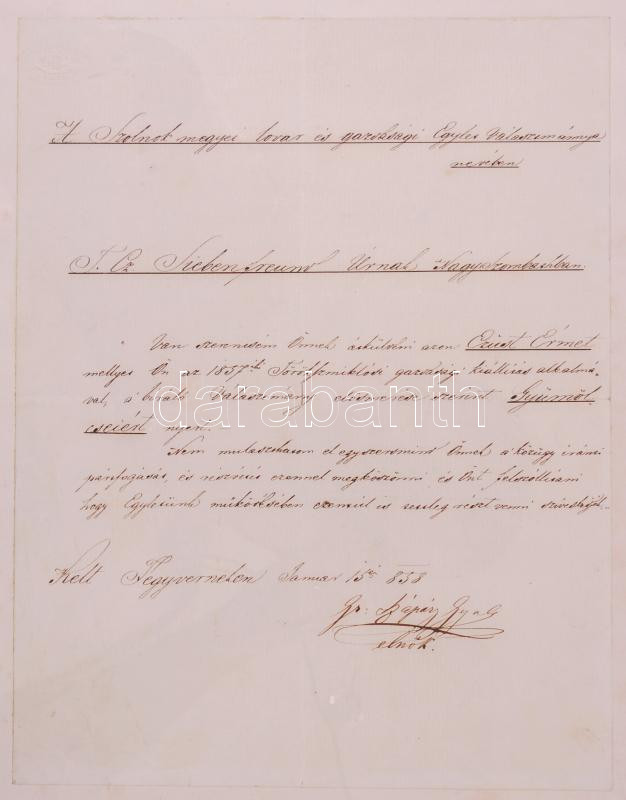 A Szolnok megyei lovar és gazdasági Egylet Választmánya
nevében
T. Cz. Siebenfreund Úrnak Nagyszombatban.
Van szerencsém Önnek átküldeni azon Ezüst Érmet
mellyet Ön az 1857ik Törökszmiklósi gazdasági kiállítás alkalmá-
val, a biráló Választmány elismerése szerint Gyümöl
cseiért nyert.
Nem mulaszthatom el egyszersmind Önnek a közügy iránti
pártfogását, és részvétét ezennel megköszönni, és Önt felszóllitani
hogy Egyletünk működésében ezentúl is részt venni szíveskedjék.
Kelt Fegyverneken Januar 15én 858
Gr: Szápáry Gyula
elnök.
darabanth